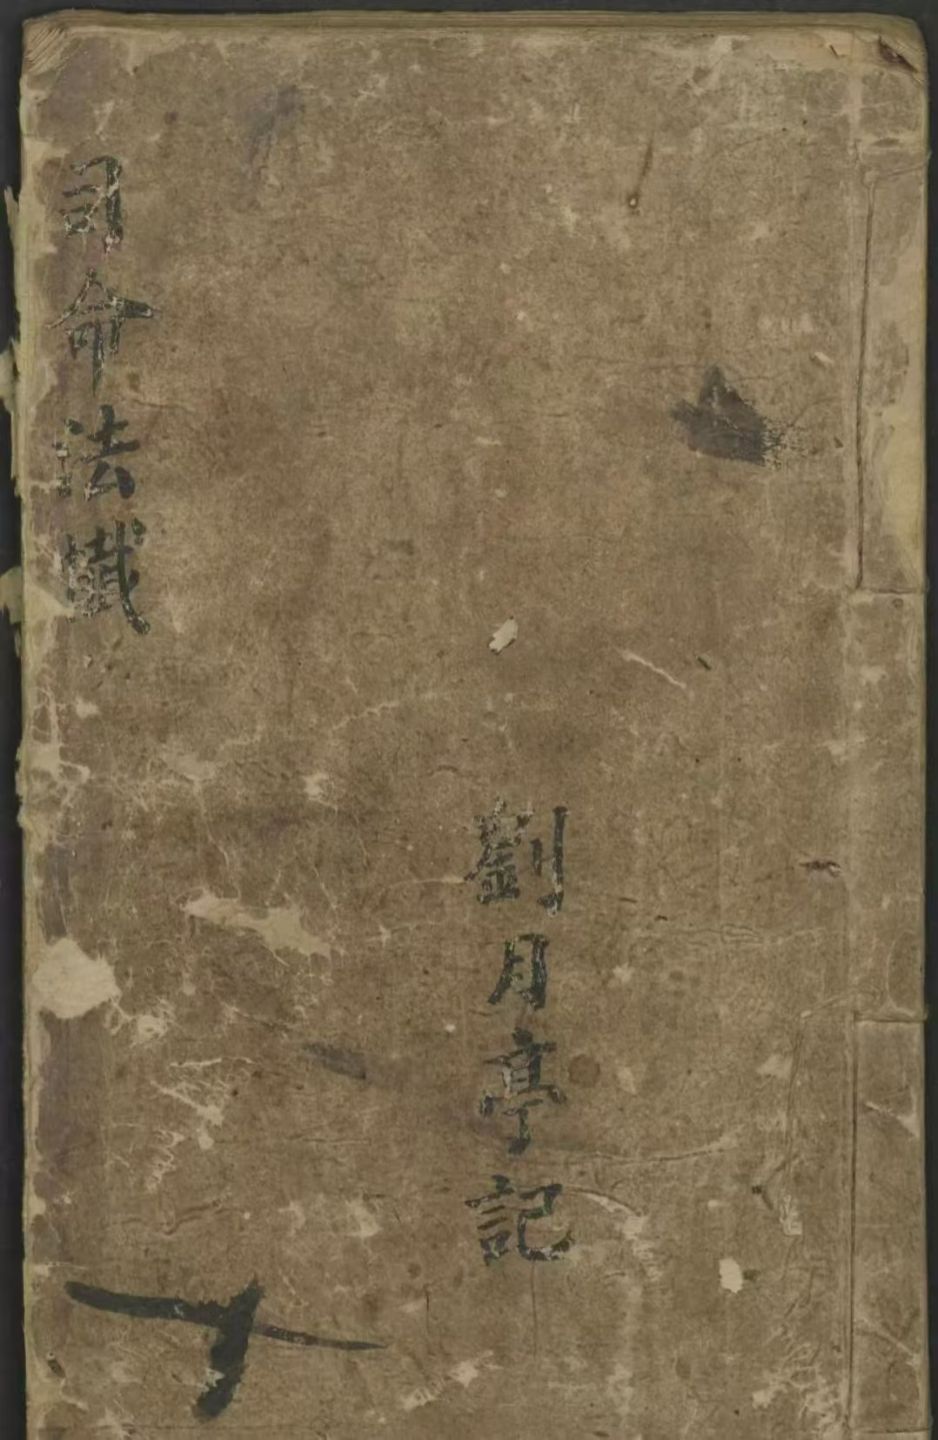 司命法懺
劉月亭記
十